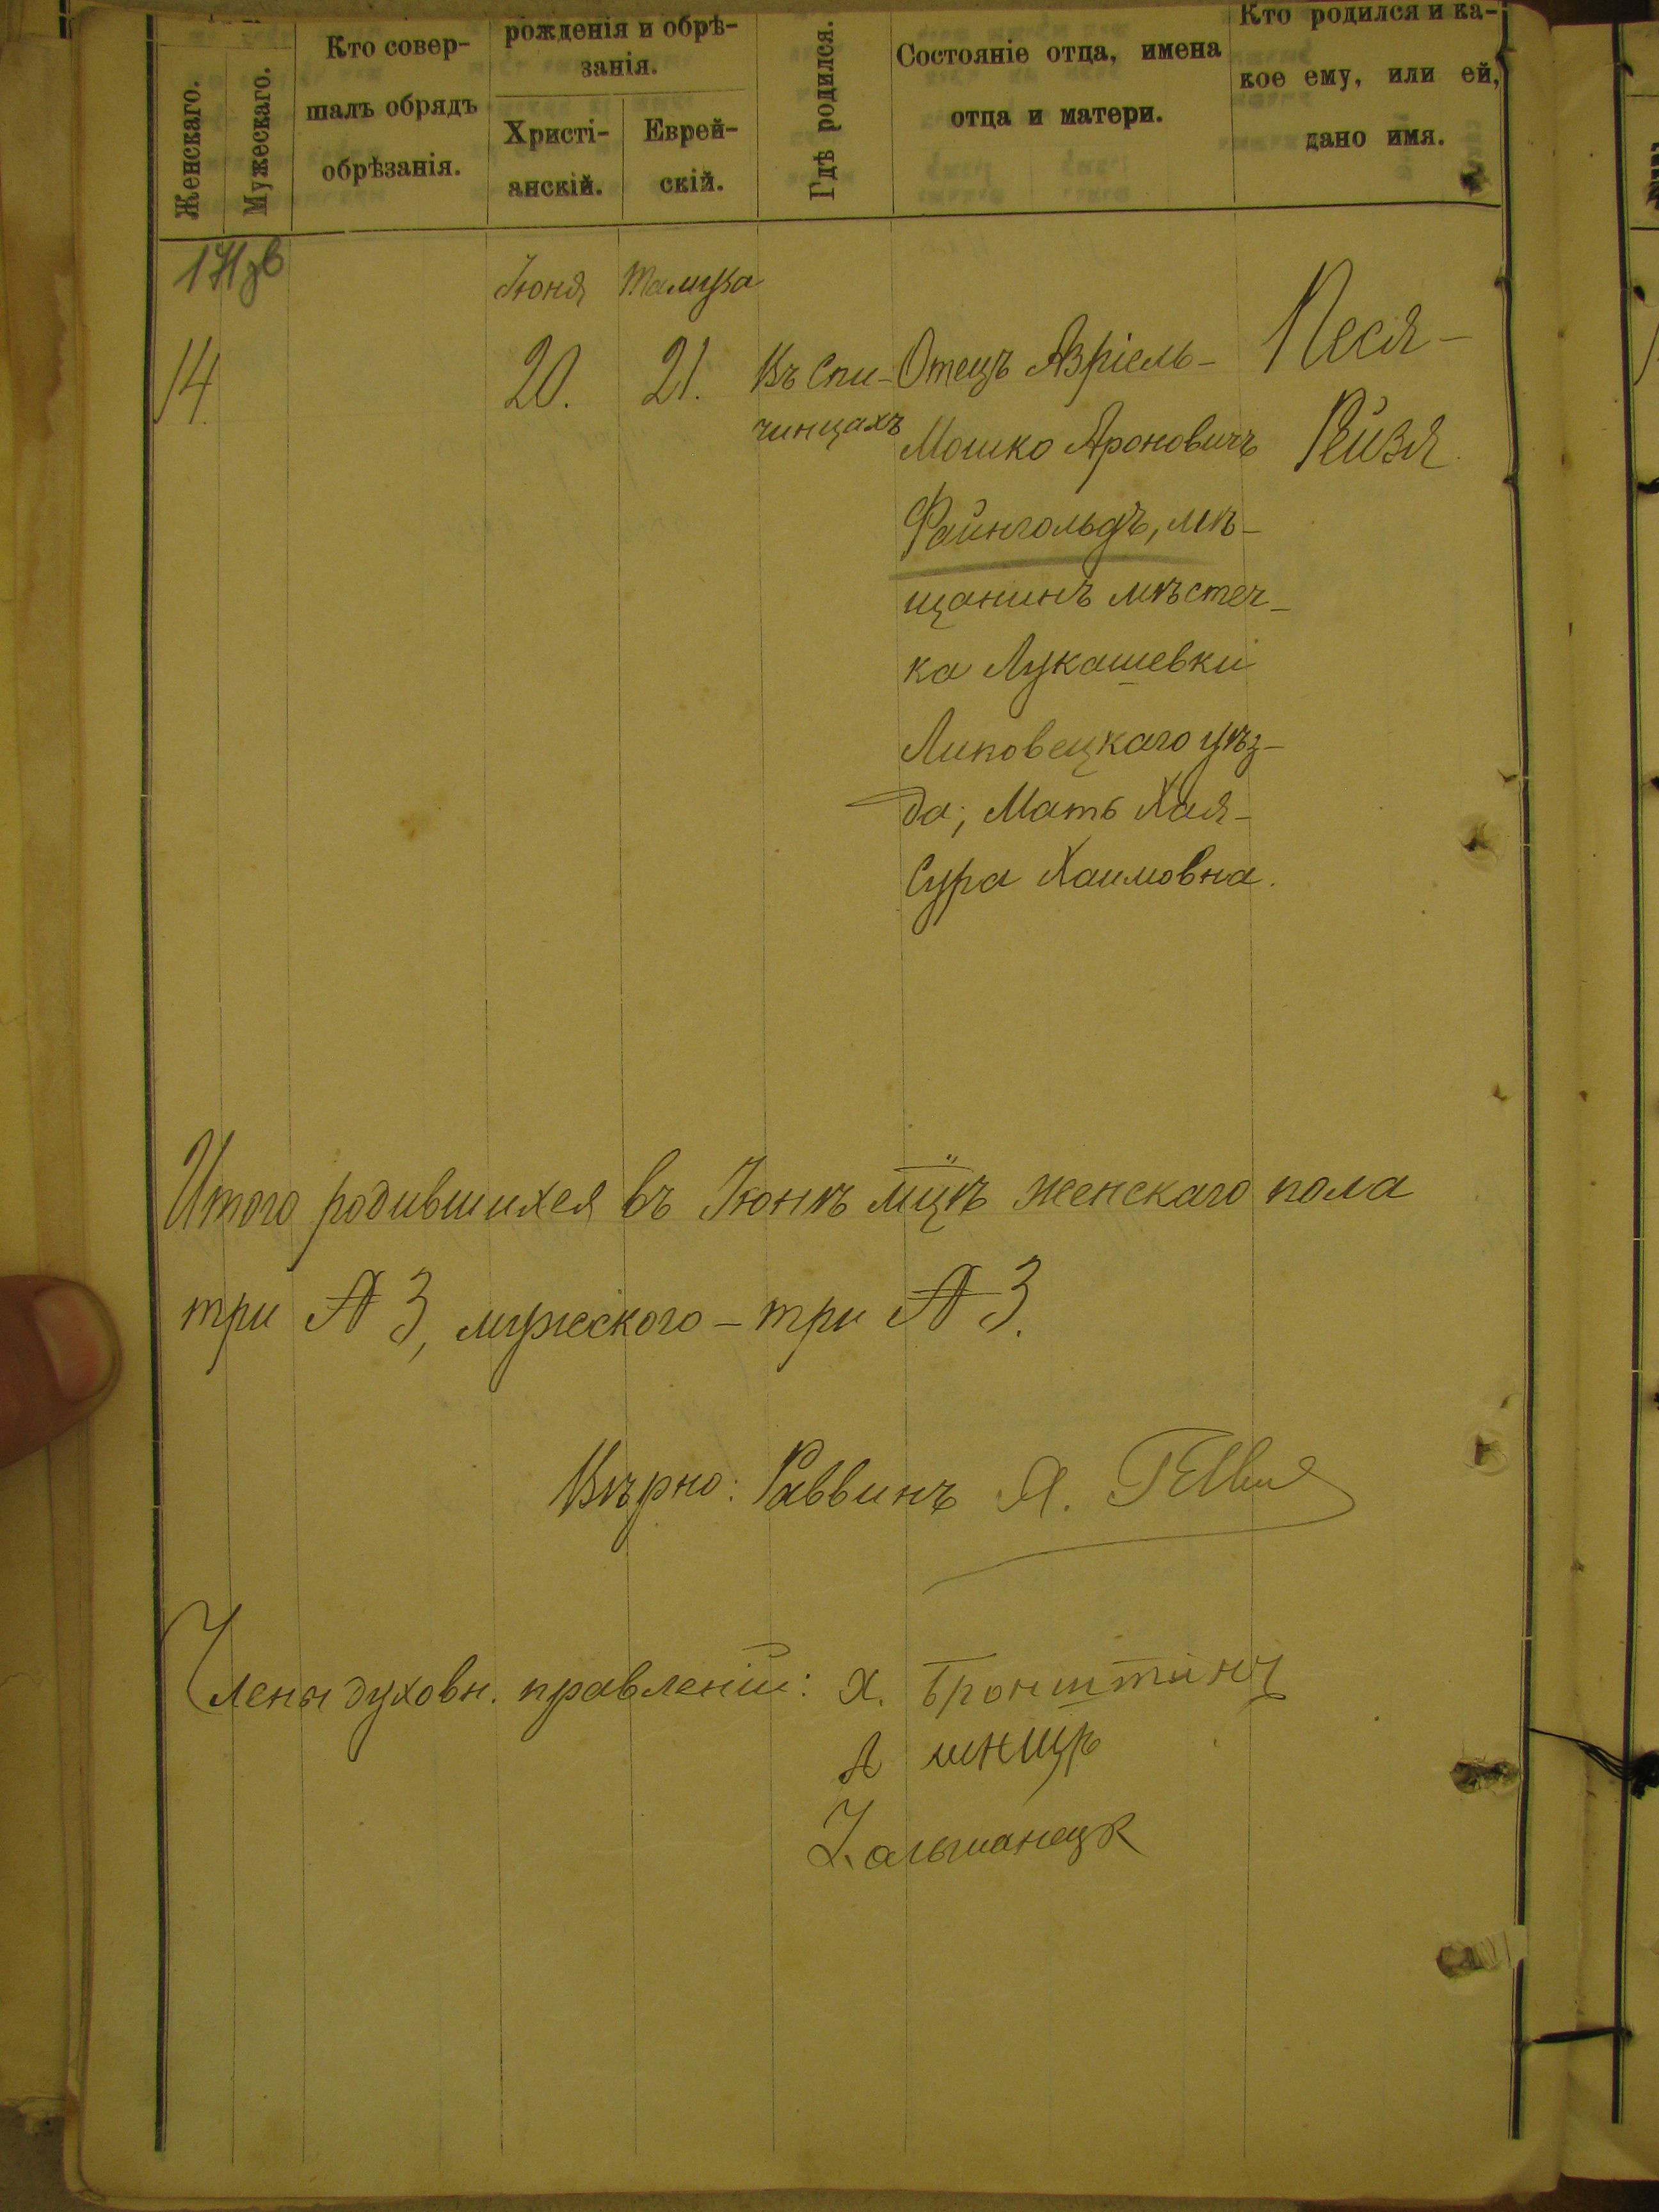 Женскаго.
Мужескаго.
Кто совер-
шалъ обрядъ
обрѣзанія.
рожденія и обрѣ-
занія.
Христі-
анскій.
Еврей-
скій.
Гдѣ родился.
Состояніе отца, имена
отца и матери.
Кто родился и ка-
кое ему, или ей,
дано имя.
Іюня Тамуза
14. 20. 21. Въ Спи-
чинцахъ
Отецъ Азріель-
Мошко Ароновичъ
Файнгольдъ, мѣ-
щанинъ мѣстеч-
ка Лукашевки
Липовецкаго уѣз-
да; Мать Хая-
Сура Хаимовна.
Песя-
Рейзя.
Итого родившихся въ Іюнѣ мцѣ женскаго пола
три № 3, мужского - три № 3.
Вѣрно: Раввинъ Я.
Члены духовн. правленій: Х. Бронштинъ